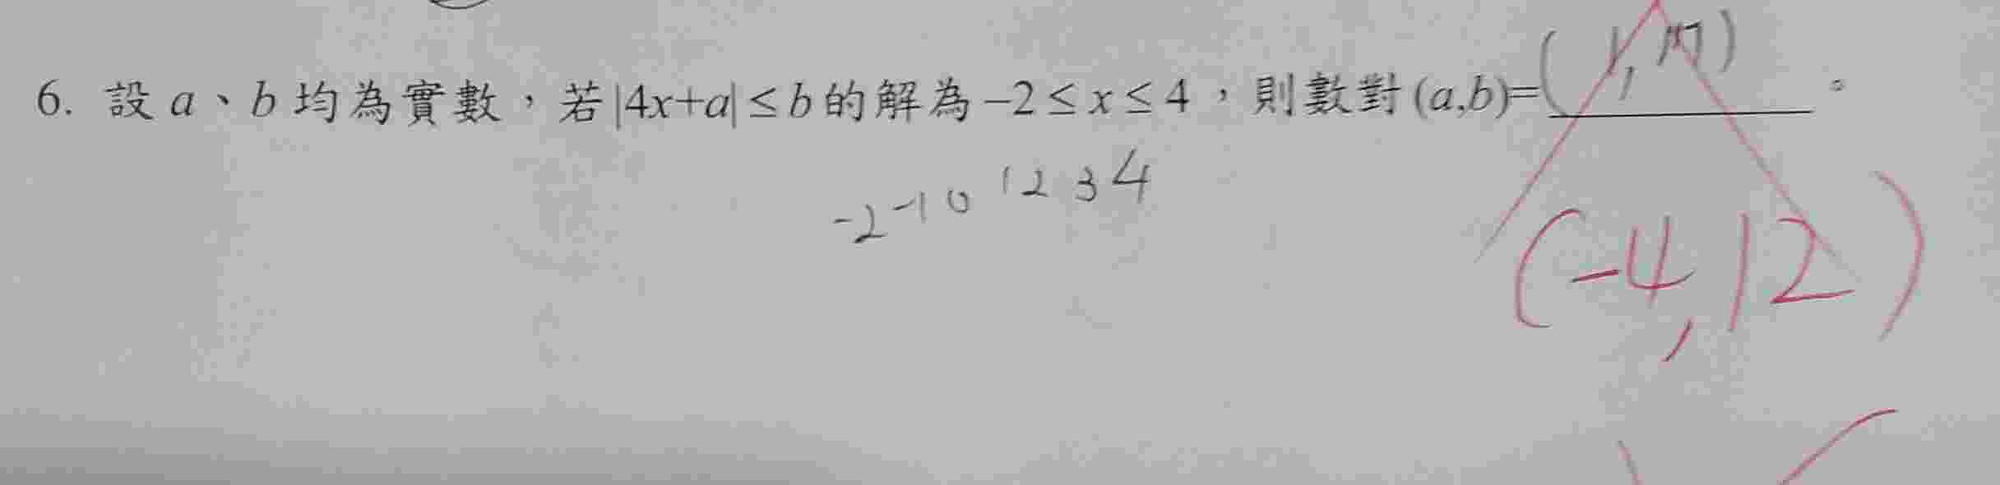 6. 設 a、b 均為實數，若 |4x+a| ≤ b 的解為 −2 ≤ x ≤ 4，則數對 (a,b)=( 1, )。
-2 -1 0 1 2 3 4
(-4, 12)